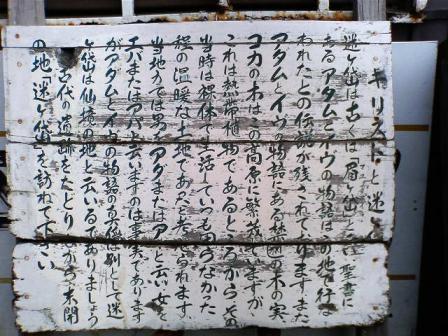 キリストと迷ヶ
迷ヶ岱は古くは「眉ヶ岱」と云い聖書に
あるアダムとイヴの物語はこの地で行な
われたとの伝説が残されております。また
アダムとイヴの物語にある禁断の木の実
コカの木はこの高原に繁茂してますが
これは熱帯植物であるところからその
当時は裸体で生活していつ なかった
程の温暖な土地であったと考えられます
当地方では男をアダまたはア と云い女を
エバまたはア と云いますのは事実であります
がアダムとイヴの物語の真偽は別として迷
ヶ岱は仙境の地と云いるでありましょう
古代の遺跡をたどりながら未開
の地「迷ヶ岱」を訪ねて下さい